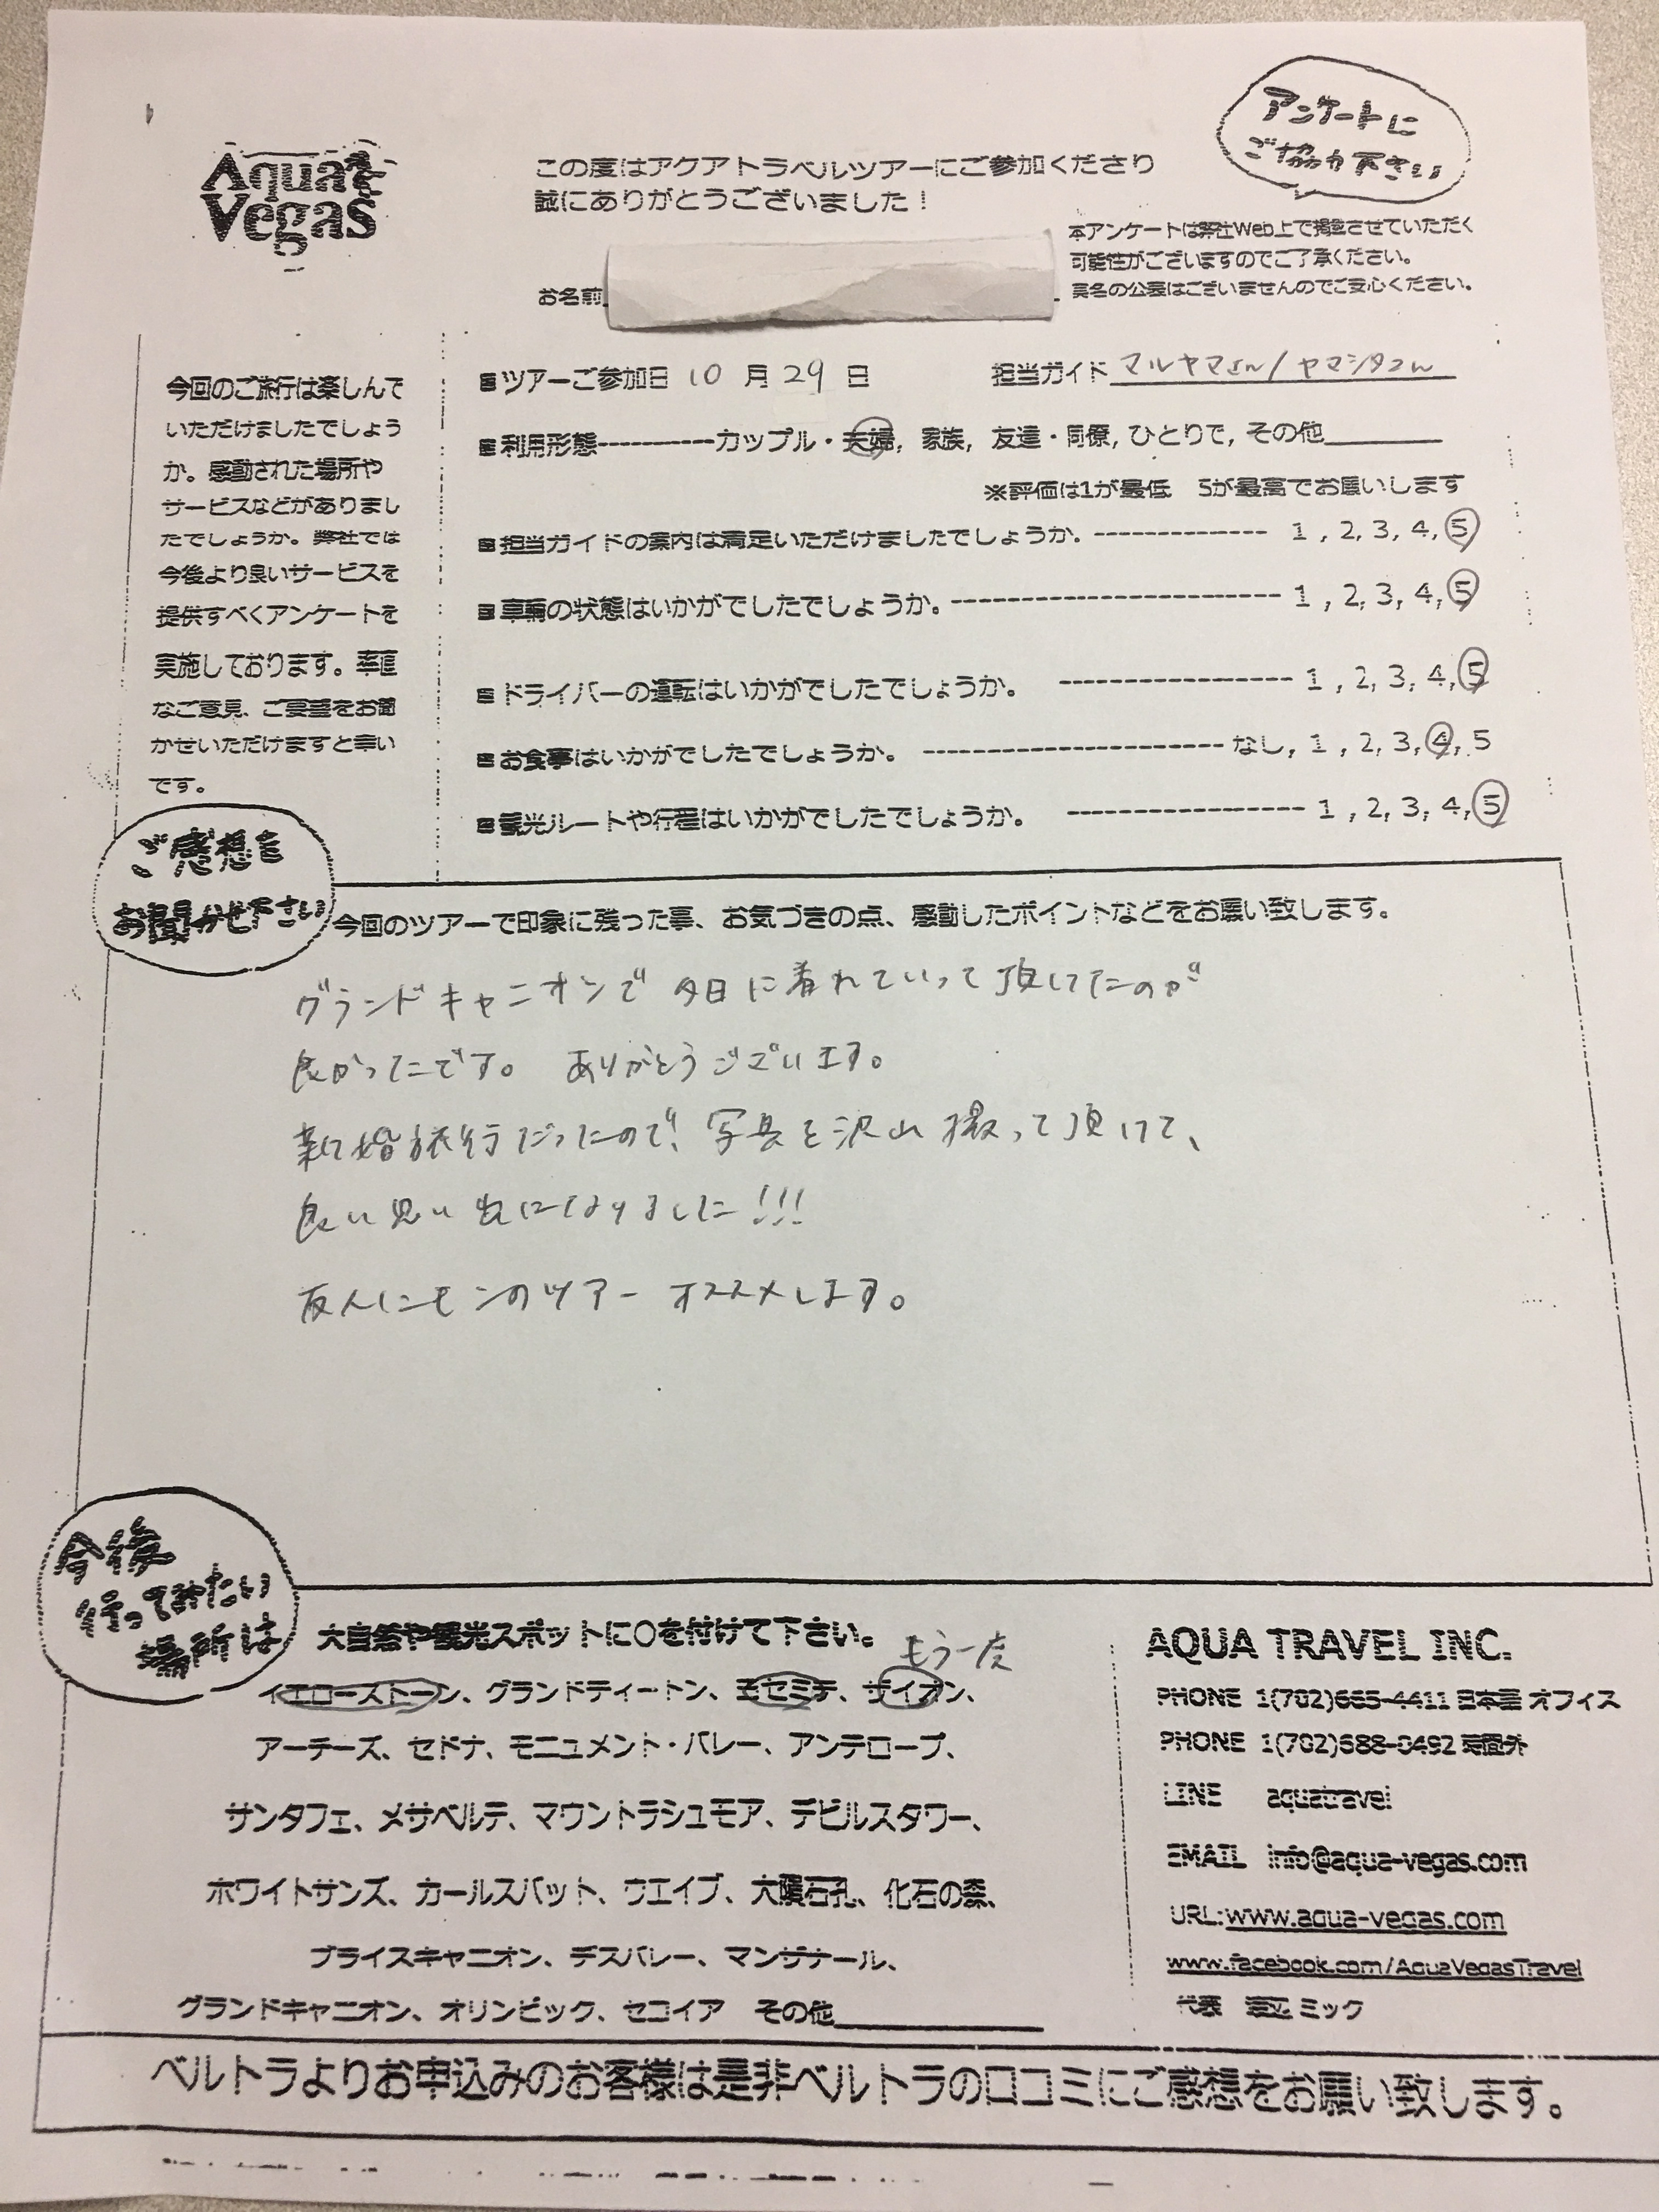 Aqua
Vegas
この度はアクアトラベルツアーにご参加くださり
誠にありがとうございました！
アンケートに
ご協力下さい
本アンケートは弊社Web上で掲載させていただく
可能性がございますのでご了承ください。
実名の公表はございませんのでご安心ください。
お名前
今回のご旅行は楽しんで
いただけましたでしょう
か。感動された場所や
サービスなどがありまし
たでしょうか。弊社では
今後より良いサービスを
提供すべくアンケートを
実施しております。率直
なご意見、ご要望をお聞
かせいただけますと幸い
です。
■ツアーご参加日 10 月 29 日 担当ガイド マルヤマさん/ヤマシタさん
■利用形態----------カップル・夫婦, 家族, 友達・同僚, ひとりで, その他
※評価は1が最低 5が最高でお願いします
■担当ガイドの案内は満足いただけましたでしょうか. ------------- 1 , 2, 3, 4, 5
■車輛の状態はいかがでしたでしょうか. ------------------------- 1 , 2, 3, 4, 5
■ドライバーの運転はいかがでしたでしょうか。 ------------------ 1 , 2, 3, 4, 5
■お食事はいかがでしたでしょうか。 ----------------------- なし, 1 , 2, 3, 4, 5
■観光ルートや行程はいかがでしたでしょうか。 ------------------ 1 , 2, 3, 4, 5
ご感想を
お聞かせ下さい
今回のツアーで印象に残った事、お気づきの点、感動したポイントなどをお願い致します。
グランドキャニオンで 夕日に 連れていって頂けたのが
良かったです。 ありがとうございます。
新婚旅行だったので、写真を沢山 撮って頂けて、
良い思い出になりました!!!
友人にも このツアー オススメします。
今後
行ってみたい
場所は
大自然や観光スポットに○を付けて下さい。
もう一度
イエローストーン、グランドティートン、ヨセミテ、ザイオン、
アーチーズ、セドナ、モニュメント・バレー、アンテロープ、
サンタフェ、メサベルテ、マウントラシュモア、デビルスタワー、
ホワイトサンズ、カールスバット、ウエイブ、大隕石孔、化石の森、
ブライスキャニオン、デスバレー、マンザナール、
グランドキャニオン、オリンピック、セコイア その他
AQUA TRAVEL INC.
PHONE 1(702)665-4411 日本語 オフィス
PHONE 1(702)688-0492 時間外
LINE aquatravel
EMAIL info@aqua-vegas.com
URL:www.aqua-vegas.com
www.facebook.com/AquaVegasTravel
代表 ミック
ベルトラよりお申込みのお客様は是非ベルトラの口コミにご感想をお願い致します。